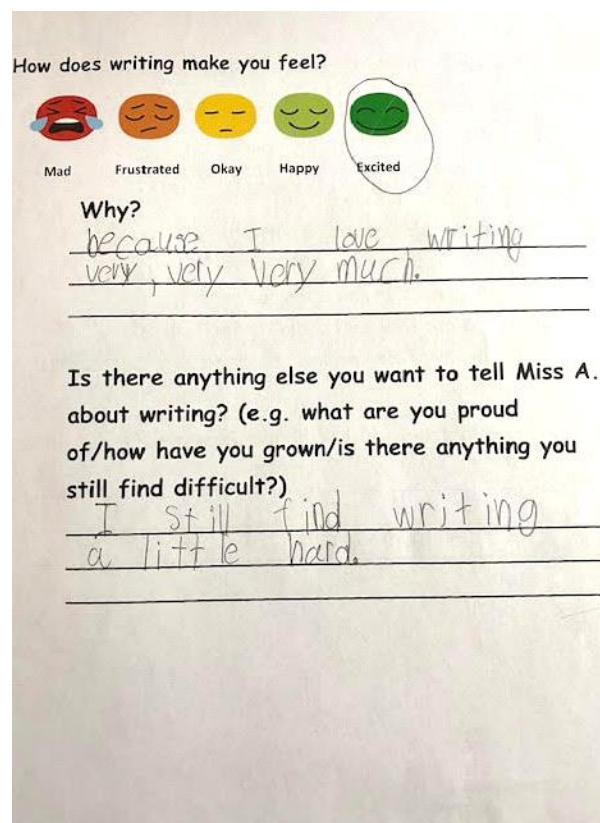 How does writing make you feel?
Mad Frustrated Okay Happy Excited
Why?
because I love writing
very, very very much.
Is there anything else you want to tell Miss A.
about writing? (e.g. what are you proud
of/how have you grown/is there anything you
still find difficult?)
I still find writing
a little hard.